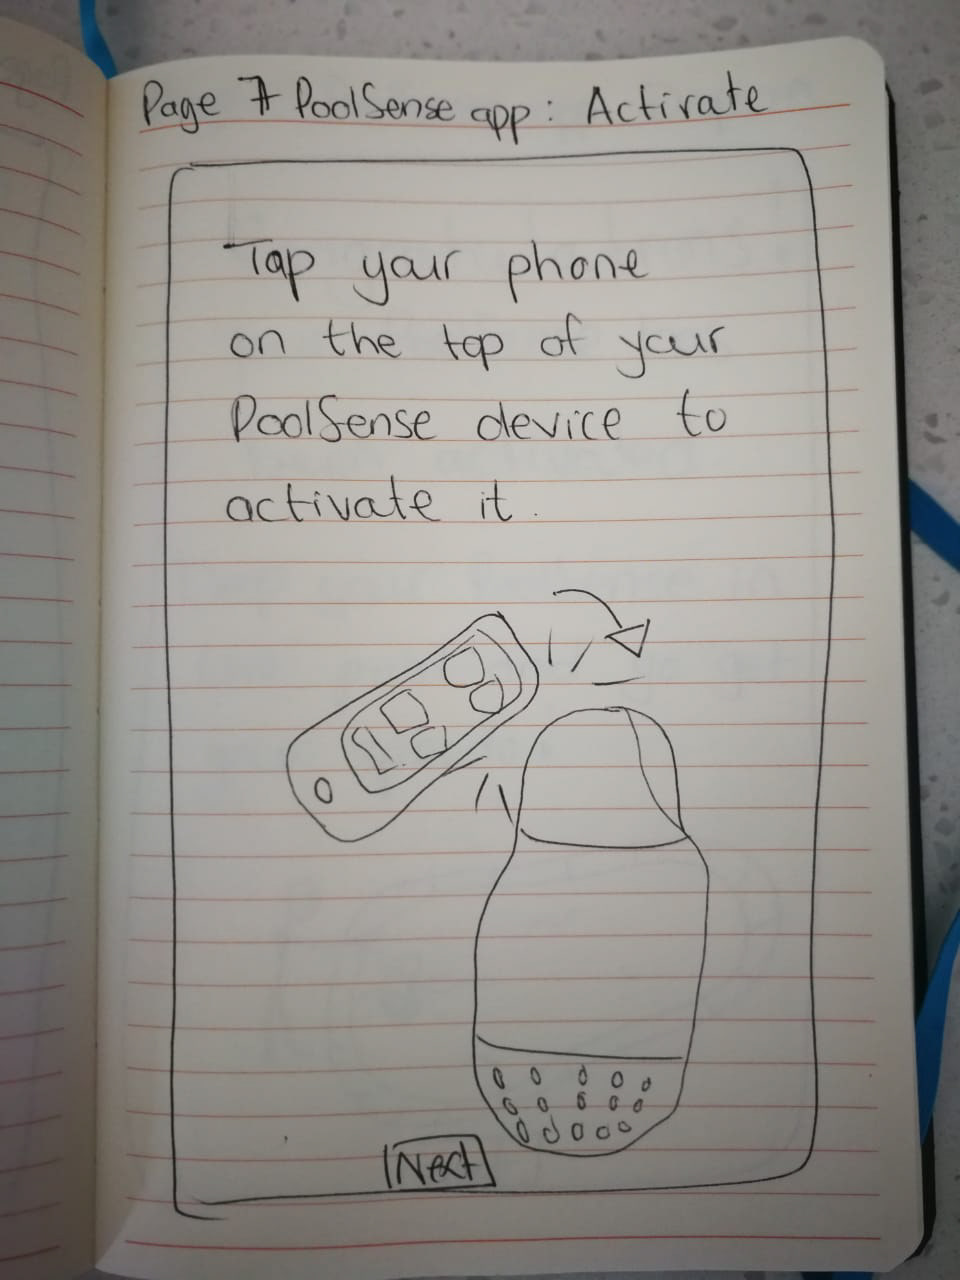 Page 7 PoolSense app: Activate
Tap your phone
on the top of your
PoolSense device to
activate it.
Next